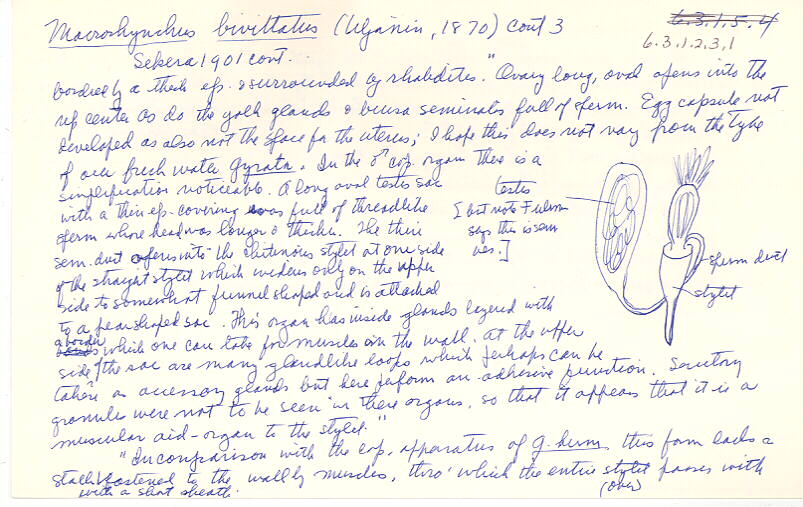 Macrorhynchus bivittatus (Uljanin, 1870) cont 3
6.3.1.5.4
6.3.1.2.3.1
Sekera 1901 cont.
by a thick ep. & surrounded by rhabdites." Ovary long, oval opens into the
center as do the yolk glands & bursa seminalis full of sperm. Egg capsule not
developed as also not the space for the uterus; I hope this does not vary from the type
of our fresh water Gyrator. In the ♂ cop. organ there is a
simplification noticeable. A long oval testes sac
with a thin ep. covering was full of threadlike
sperm whose head was longer & thicker. The thin
sem. duct opens into the chitenous stylet at one side
of the straight stylet which widens only on the upper
side to somewhat funnel shaped and is attached
to a pear shaped sac. This organ has inside glands layered with
a border which one can take for muscles in the wall. At the upper
side of the sac are many glandlike loops which perhaps can be
taken as accessory glands but here perform an adhesive function. Secretory
granules were not to be seen in these organs, so that it appears that it is a
muscular aid-organ to the stylet."
"In comparison with the cop. apparatus of G. herm. this form lacks a
stalk fastened to the wall by muscles, thro' which the entire stylet passes with
with a short sheath.
(over)
testes
[but note
says this is sem
ves.]
sperm duct
stylet